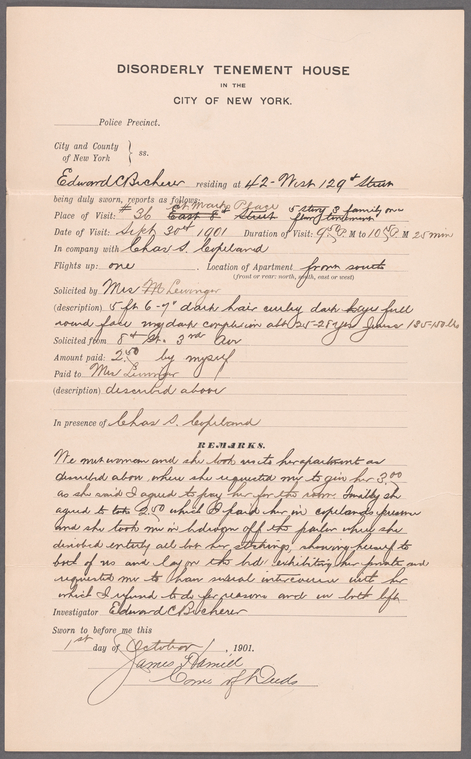 DISORDERLY TENEMENT HOUSE
IN THE
CITY OF NEW YORK.
Police Precinct.
City and County
of New York } ss.
Edward C Becherer residing at 42- West 129th Street
being duly sworn, reports as follows:
St Marks Place
Place of Visit: # 36 East 8th Street 5 story 3 family on
floor tenement
Date of Visit: Sept 30th 1901 Duration of Visit: P. M to 10 P. M 25 min
In company with Chas S. Copeland
Flights up: one . Location of Apartment front south
(front or rear: north, south, east or west)
Solicited by Mrs M. Levinger
(description) 5 ft 6-7" dark hair curley dark eyes full
round face dark complexion abt 25-28 yrs 125-150 lbs
Solicited from 8th St. 3rd Av
Amount paid: 2.50 by myself
Paid to Mrs Levinger
(description) described above
In presence of Chas S. Copeland
REMARKS.
We met woman and she took us to her apartment as
described above where she requested me to give her 3.00
as she said I agreed to pay her for the room finally she
agreed to take 2.50 which I paid her in Copelands presence
and she took me in bedroom off the parlor where she
disrobed entirely all but her stockings, showing herself to
both of us and lay on the bed exhibiting her private and
requested me to have sexual intercourse with her
which I refused to do for reasons and we both left
Investigator Edward C Becherer
Sworn to before me this
1st day of October , 1901.
James Hamill
Coms of Deeds